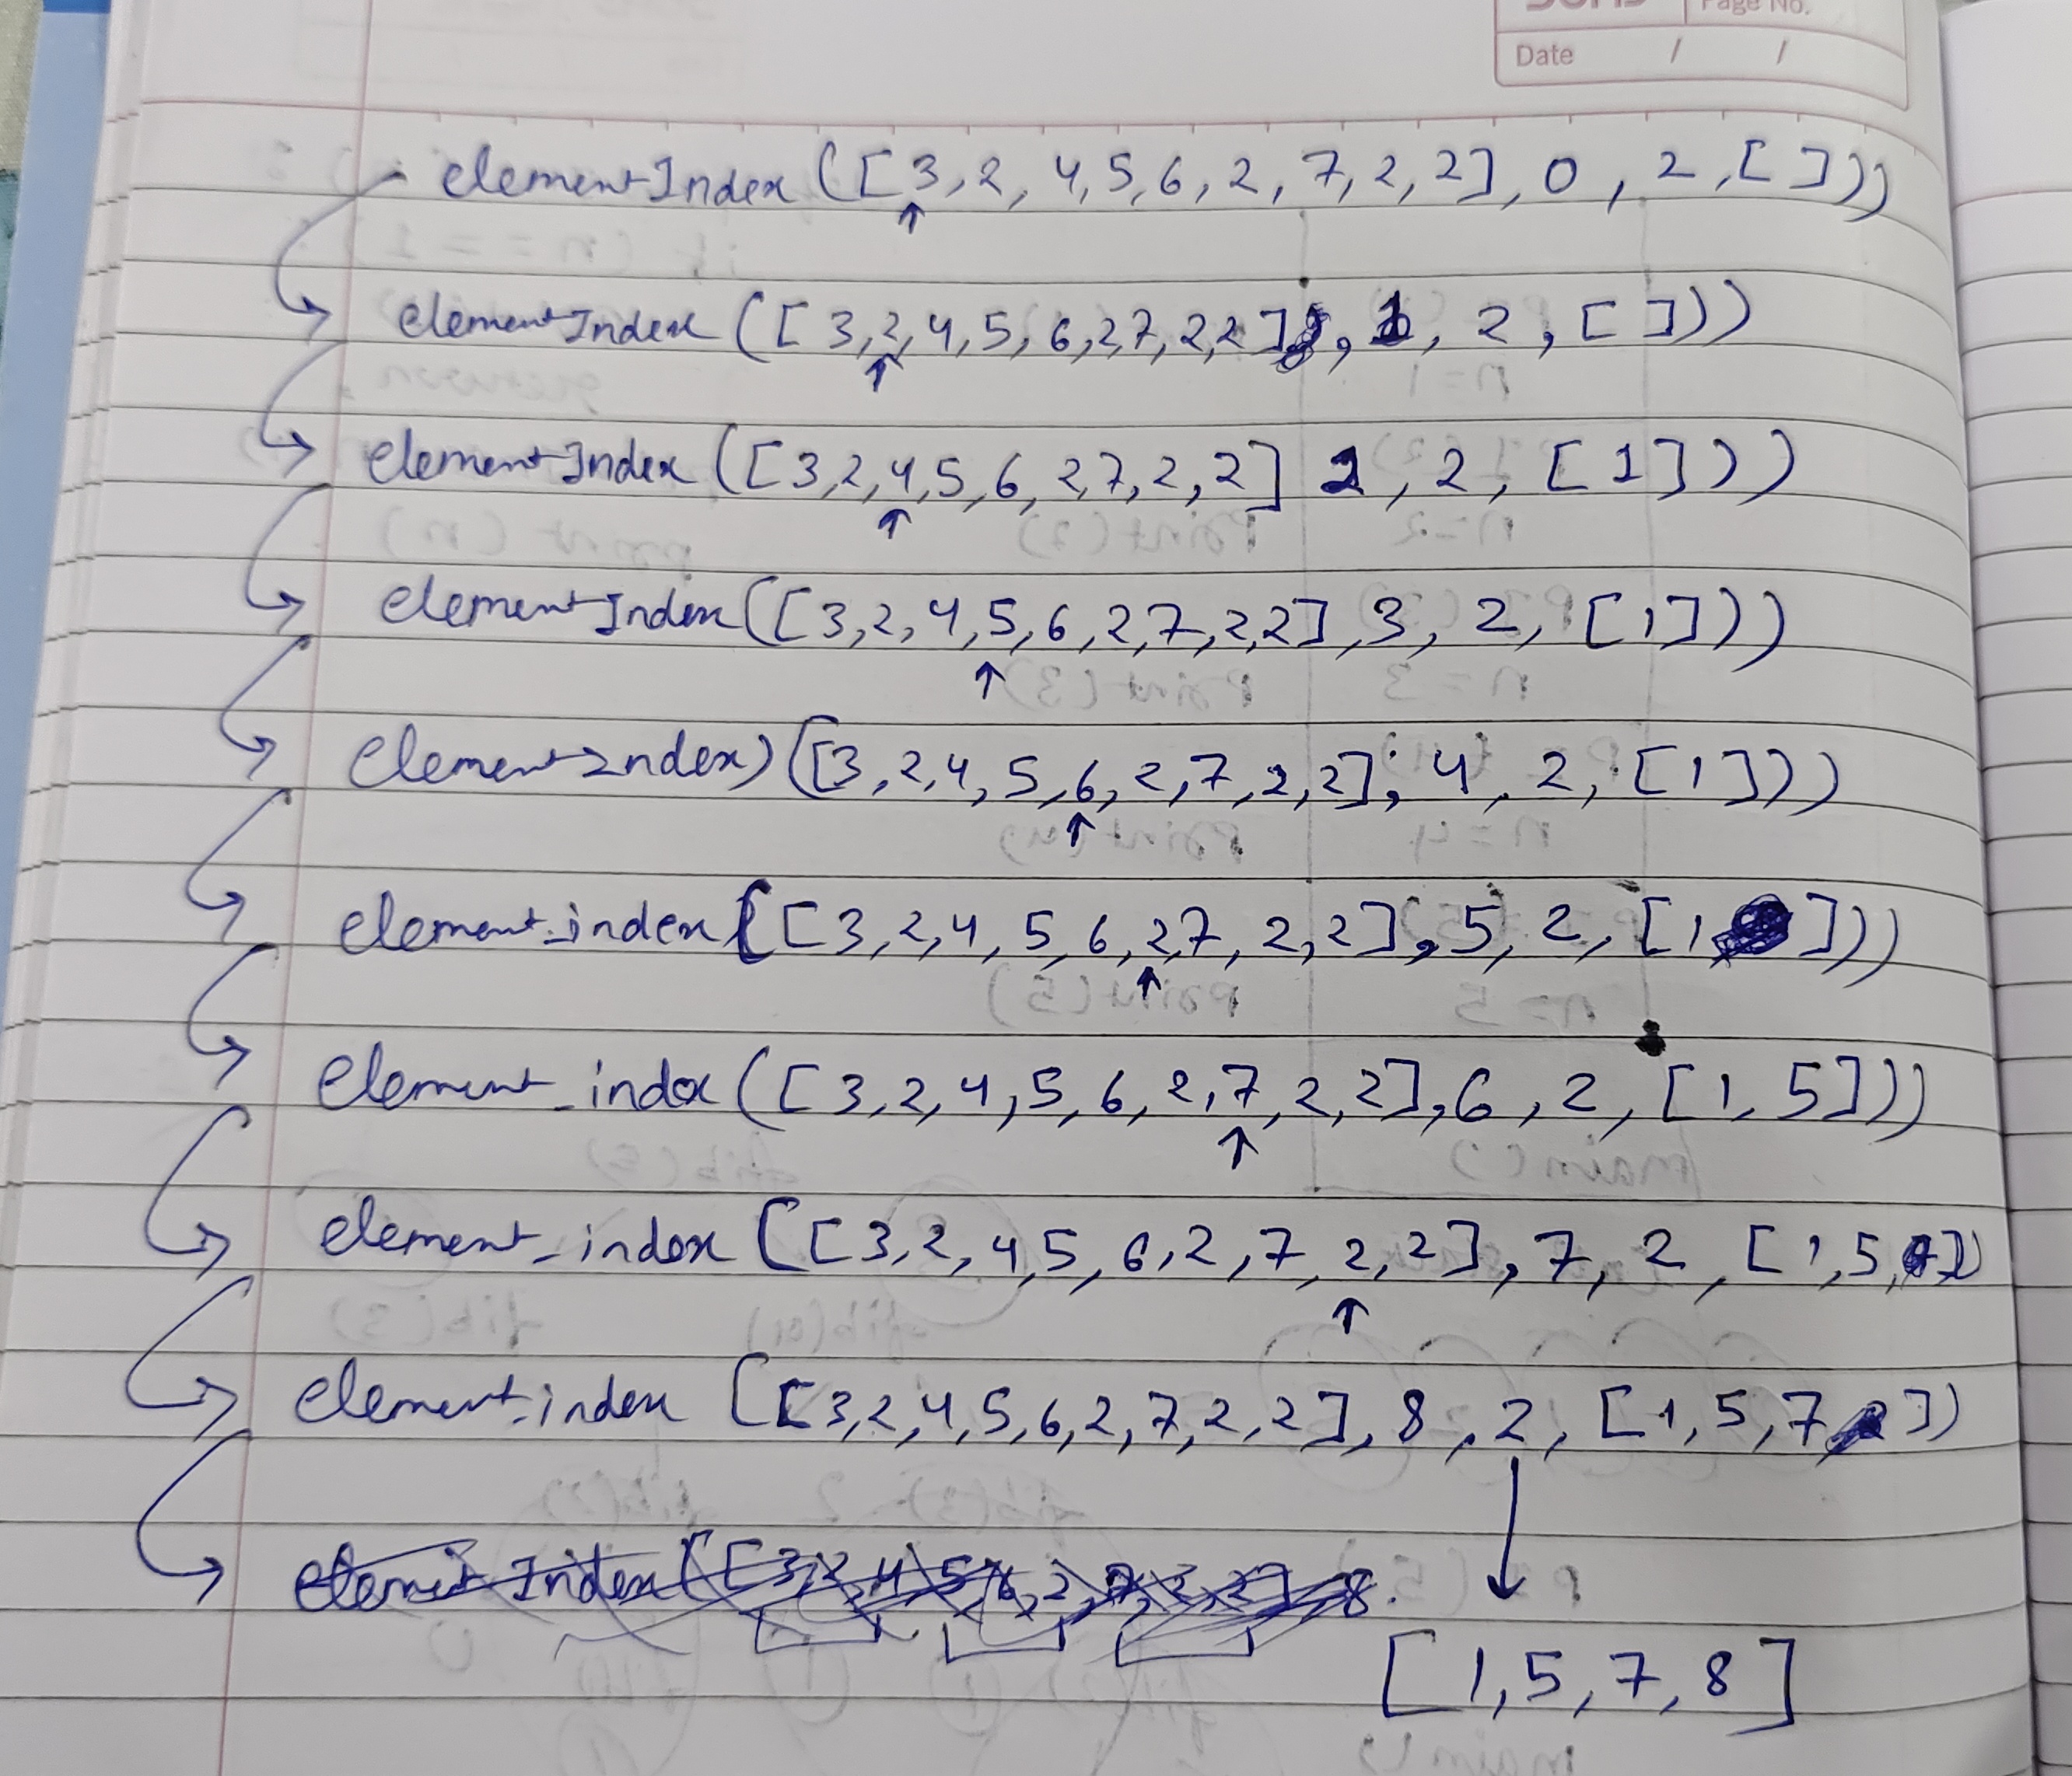 Page No.
Date / /
elementIndex ([3,2,4,5,6,2,7,2,2],0,2,[]))
elementIndex ([3,2,4,5,6,2,7,2,2],1,2,[]))
elementIndex ([3,2,4,5,6,2,7,2,2] 2,2,[1]))
elementIndex ([3,2,4,5,6,2,7,2,2],3,2,[1]))
elementIndex) ([3,2,4,5,6,2,7,2,2],4,2,[1]))
element_index ([3,2,4,5,6,2,7,2,2],5,2,[1]))
element_index ([3,2,4,5,6,2,7,2,2],6,2,[1,5]))
element_index ([3,2,4,5,6,2,7,2,2],7,2,[1,5
element_index ([3,2,4,5,6,2,7,2,2],8,2,[1,5,7])
[1,5,7,8]